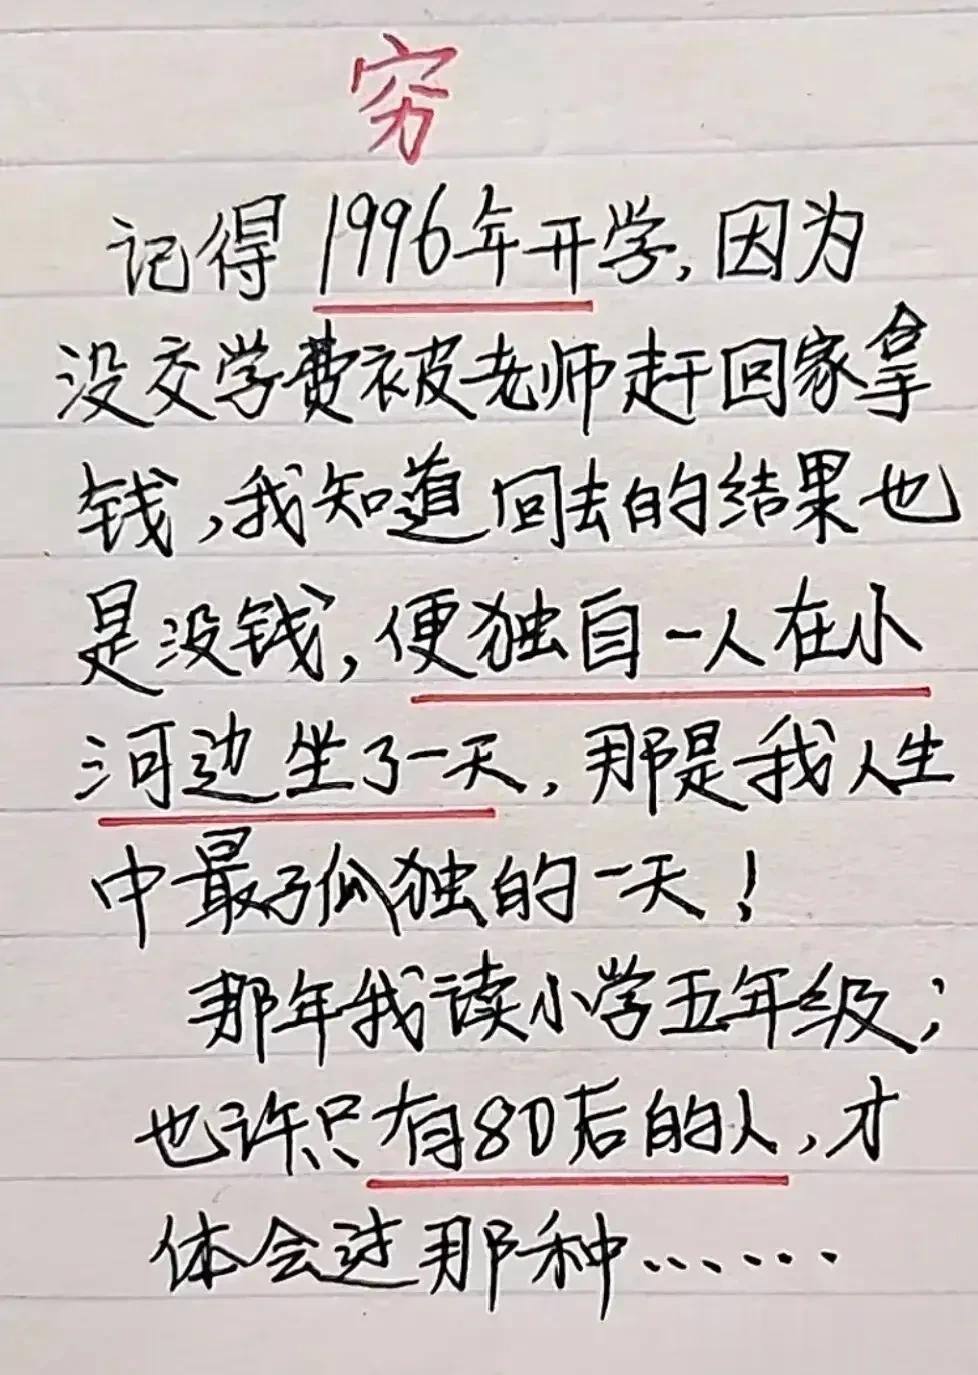 穷
记得1996年开学,因为
没交学费被老师赶回家拿
钱,我知道回去的结果也
是没钱,便独自一人在小
河边坐了一天,那是我人生
中最孤独的一天!
那年我读小学五年级;
也许只有80后的人,才
体会过那种……